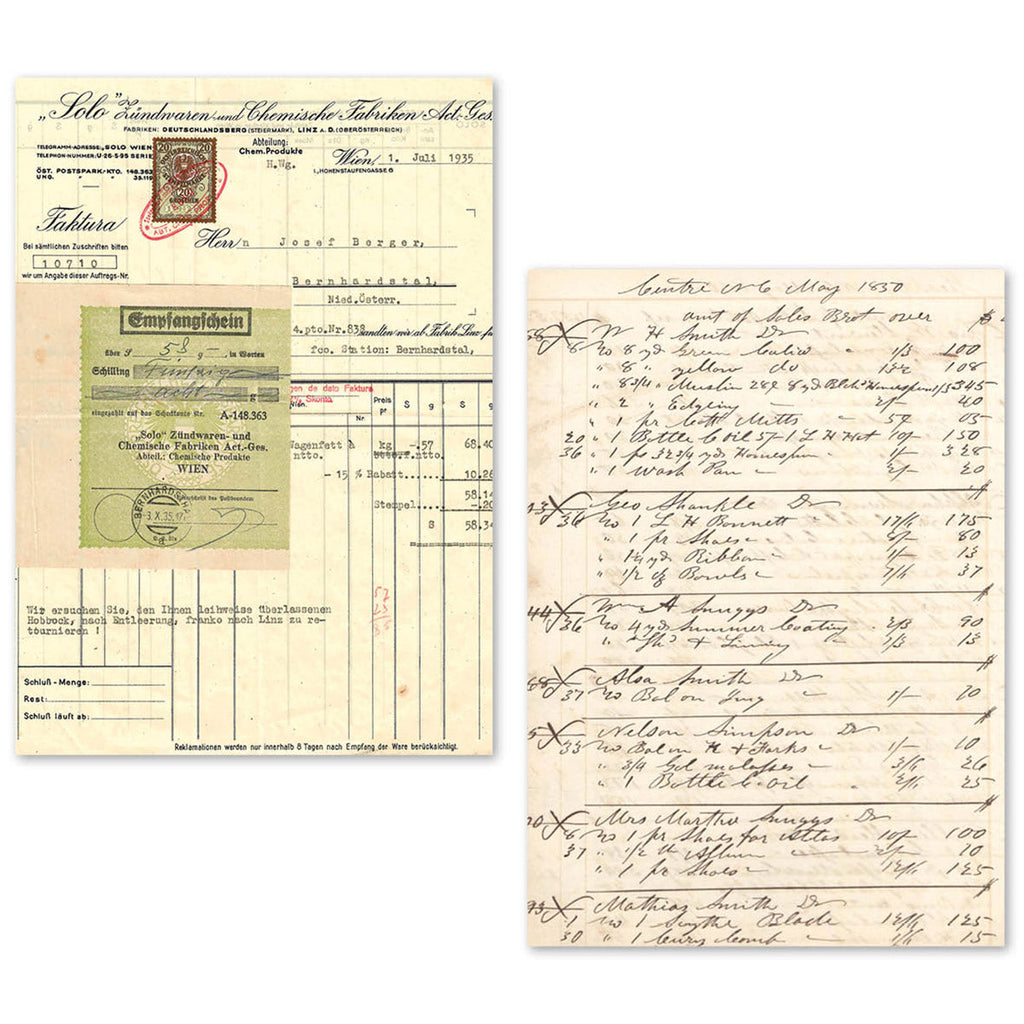 „Solo" Zündwaren- und Chemische Fabriken Act. Ges.
FABRIKEN: DEUTSCHLANDSBERG (STEIERMARK), LINZ A. D. (OBERÖSTERREICH)
TELEGRAMM-ADRESSE „SOLO WIEN
TELEPHON-NUMMER: U-26-5-95 SERIE
ÖST. POSTSPARK/KTO. 148.363
UNG. — " — 35.119
20 20
20
GROSCHEN
Abteilung:
Chem. Produkte
H.Wg.
Wien, 1. Juli 1935
I., HOHENSTAUFENGASSE 6
Faktura
Bei sämtlichen Zuschriften bitten
10710
wir um Angabe dieser Auftrags-Nr.
Herrn Josef Berger,
Bernhardstal,
Nied.Österr.
4.pto.Nr.838 sandten wir ab Fabrik Linz
fco. Station: Bernhardstal,
Empfangschein
über S 58 g –, in Worten
Schilling Fünfzig
acht g
eingezahlt auf das Scheckkonto Nr. A-148.363
„Solo" Zündwaren- und
Chemische Fabriken Act.-Ges.
Abteil.: Chemische Produkte
WIEN
Unterschrift des Postbeamten
BERNHARDSTHAL
-3.X.35.17
a
gen de dato Faktura
% Skonto
Nr.
Preis pr S g S g
Wagenfett à kg -.57 68.40
ntto. ntto.
- 15 % Rabatt 10.26
58.14
Stempel -.20
S 58.34
57
23
Wir ersuchen Sie, den Ihnen leihweise überlassenen
Hobbock, nach Entleerung, franko nach Linz zu re-
tournieren !
Schluß - Menge:
Rest:
Schluß läuft ab:
Reklamationen werden nur innerhalb 8 Tagen nach Empfang der Ware berücksichtigt.
Centre N C May 1850
amt of Sales Brot over $
68 W H Smith Dr
8 To 8 yd Green Calico 1/3 100
" 8 " yellow do 108
" 8 3/4 " Muslin 1/3 345
" 2 " Edging 2/- 40
" 1 pr Cott Mitts 5d 05
20 " 1 Bottle C Oil 5/- 1 L H Hat 10/- 150
36 " 1 ps 32 3/4 yd Homespun 1/- 328
" 1 Wash Pan 2/- 20
13 Geo Shankle Dr $
36 To 1 L H Bonnett 17/6 175
" 1 pr Shoes 8/- 80
" 1 1/4 yd Ribbon 1/- 13
" 1/2 dz Bowls 7/6 37
44 W A Snuggs Dr $
36 To 4 yd Summer Coating 2/3 90
" & Lining 1/3 13
68 Alsa Smith Dr $
37 To Bal on Jug 1/- 20
5 Nelson Simpson Dr $
33 To Bal on K & Forks 1/- 10
" 3/4 Gal molasses 3/6 26
" 1 Bottle C Oil 2/6 25
20 Mrs Martha Snuggs Dr $
6 To 1 pr Shoes for Atlas 10/- 100
37 " 1/2 lb Allum 2/- 10
" 1 pr Shoes 12/6 125
73 Mathias Smith Dr $
1 To 1 Scythe Blade 12/6 125
30 " 1 Curry Comb 1/6 15